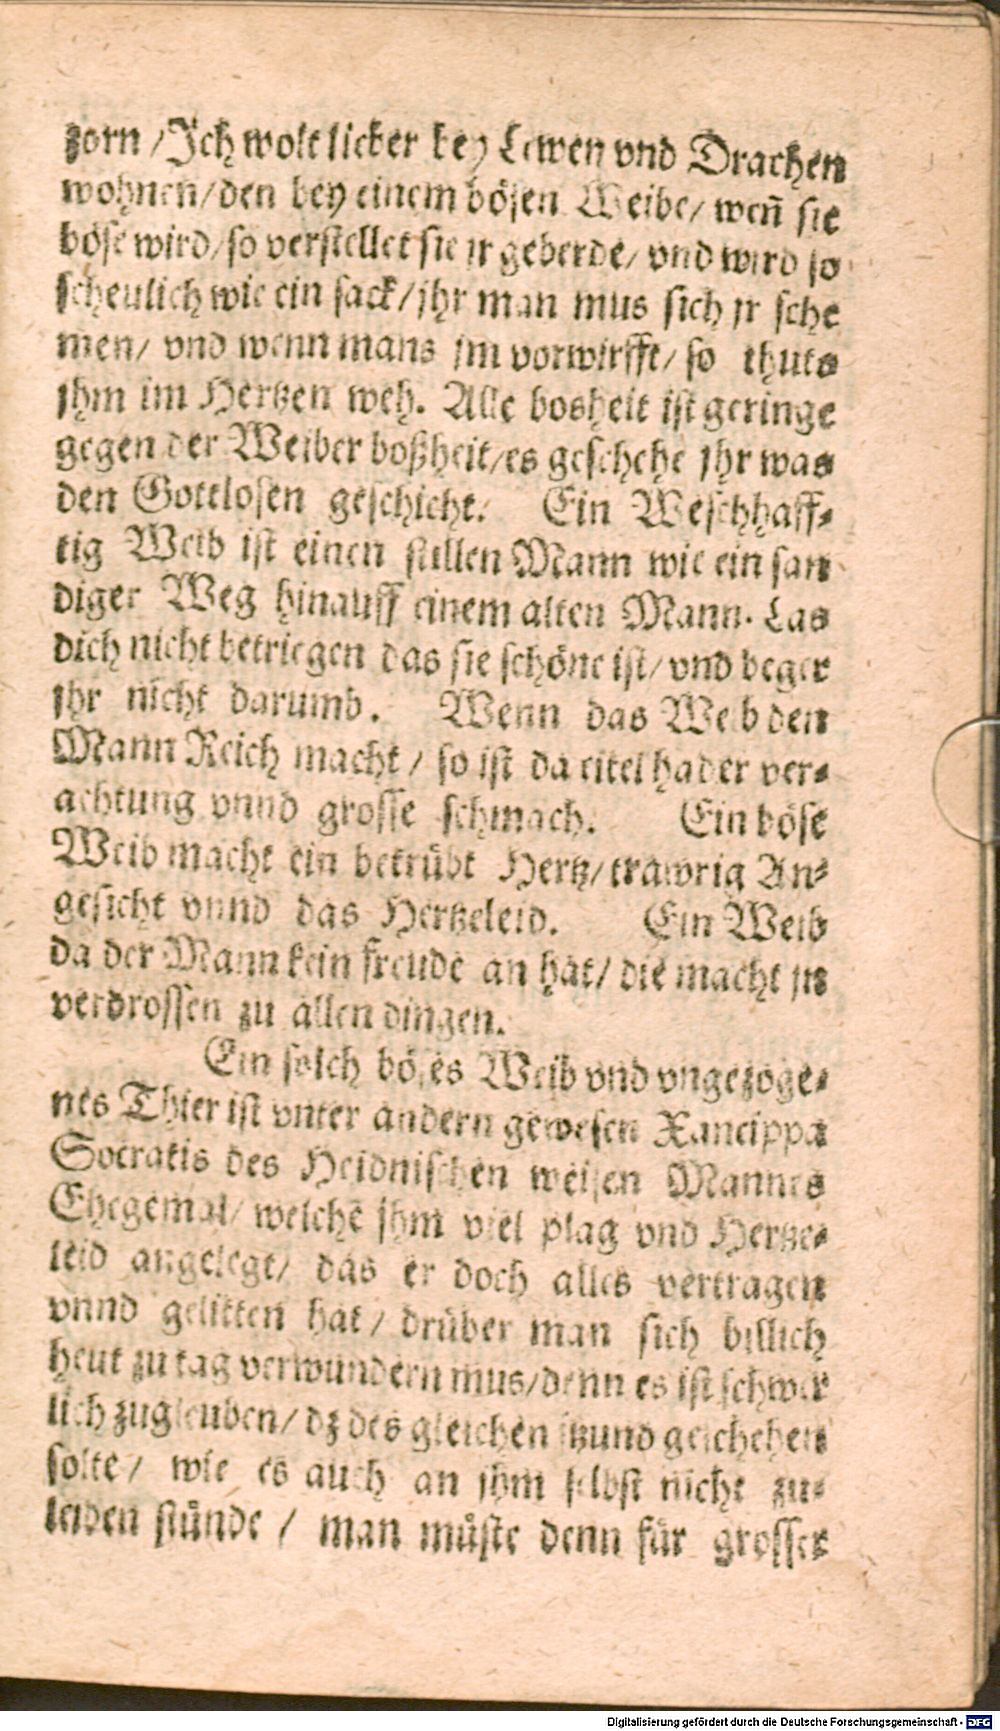 zorn / Jch wolt lieber bey Lewen vnd Drachen
wohnen / den bey einem bösen Weibe / weñ sie
böse wird / so verstellet sie jr geberde / vnd wird so
scheulich wie ein sack / jhr man mus sich jr sche
men / vnd wenn mans jm vorwirfft / so thuts
jhm im Hertzen weh. Alle bosheit ist geringe
gegen der Weiber boßheit / es geschehe jhr was
den Gottlosen geschicht. Ein Weschhaff-
tig Weib ist einen stillen Mann wie ein san
diger Weg hinauff einem alten Mann. Las
dich nicht betriegen das sie schöne ist / vnd beger
jhr nicht darumb. Wenn das Weib den
Mann Reich macht / so ist da eitel hader ver-
achtung vnnd grosse schmach. Ein böse
Weib macht ein betrübt Hertz / trawrig An-
gesicht vnnd das Hertzeleid. Ein Weib
da der Mann kein freude an hat / die macht jn
verdrossen zu allen dingen.
Ein solch böses Weib vnd vngezoge-
nes Thier ist vnter andern gewesen Xancippa
Socratis des Heidnischen weisen Mannes
Ehegemal / welche jhm viel plag vnd Hertze-
leid angelegt / das er doch alles vertragen
vnnd gelitten hat / drüber man sich billich
heut zu tag verwundern mus / denn es ist schwer
lich zugleuben / dz des gleichen itzund geschehen
solte / wie es auch an jhm selbst nicht zu-
leiden stünde / man müste denn für grosser
Digitalisierung gefördert durch die Deutsche Forschungsgemeinschaft - DFG